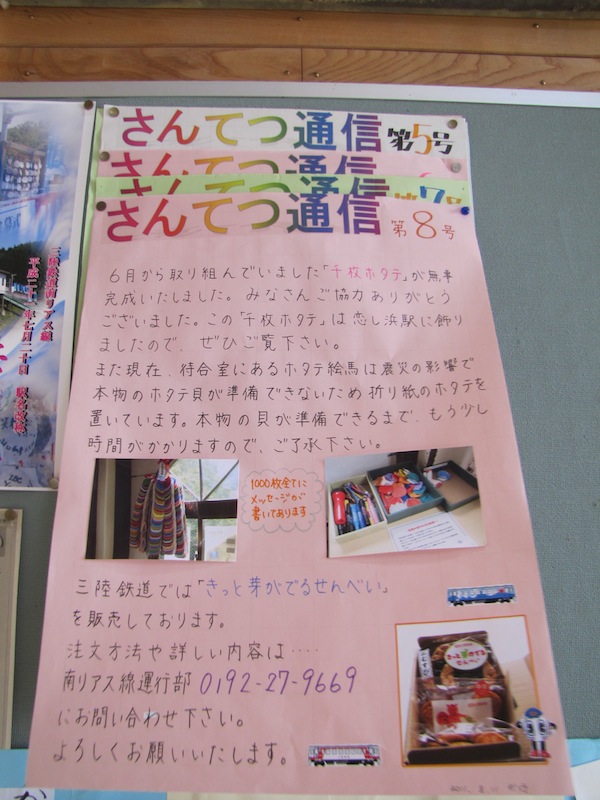 さんてつ通信 第5号
さんてつ通信
さんてつ通信
さんてつ通信 第8号
6月から取り組んでいました「千枚ホタテ」が無事
完成いたしました。みなさんご協力ありがとう
ございました。この「千枚ホタテ」は恋し浜駅に飾り
ましたので、ぜひご覧下さい。
また現在、待合室にあるホタテ絵馬は震災の影響で
本物のホタテ貝が準備できないため折り紙のホタテを
置いています。本物の貝が準備できるまで、もう少し
時間がかかりますので、ご了承下さい。
1000枚全てに
メッセージが
書いてあります
三陸鉄道では「きっと芽がでるせんべい」
を販売しております。
注文方法や詳しい内容は‥‥
南リアス線運行部 0192-27-9669
にお問い合わせ下さい。
よろしくお願いいたします。
三陸鉄道南リアス線
平成二十一年七月二十日
きっと芽がでる
せんべい